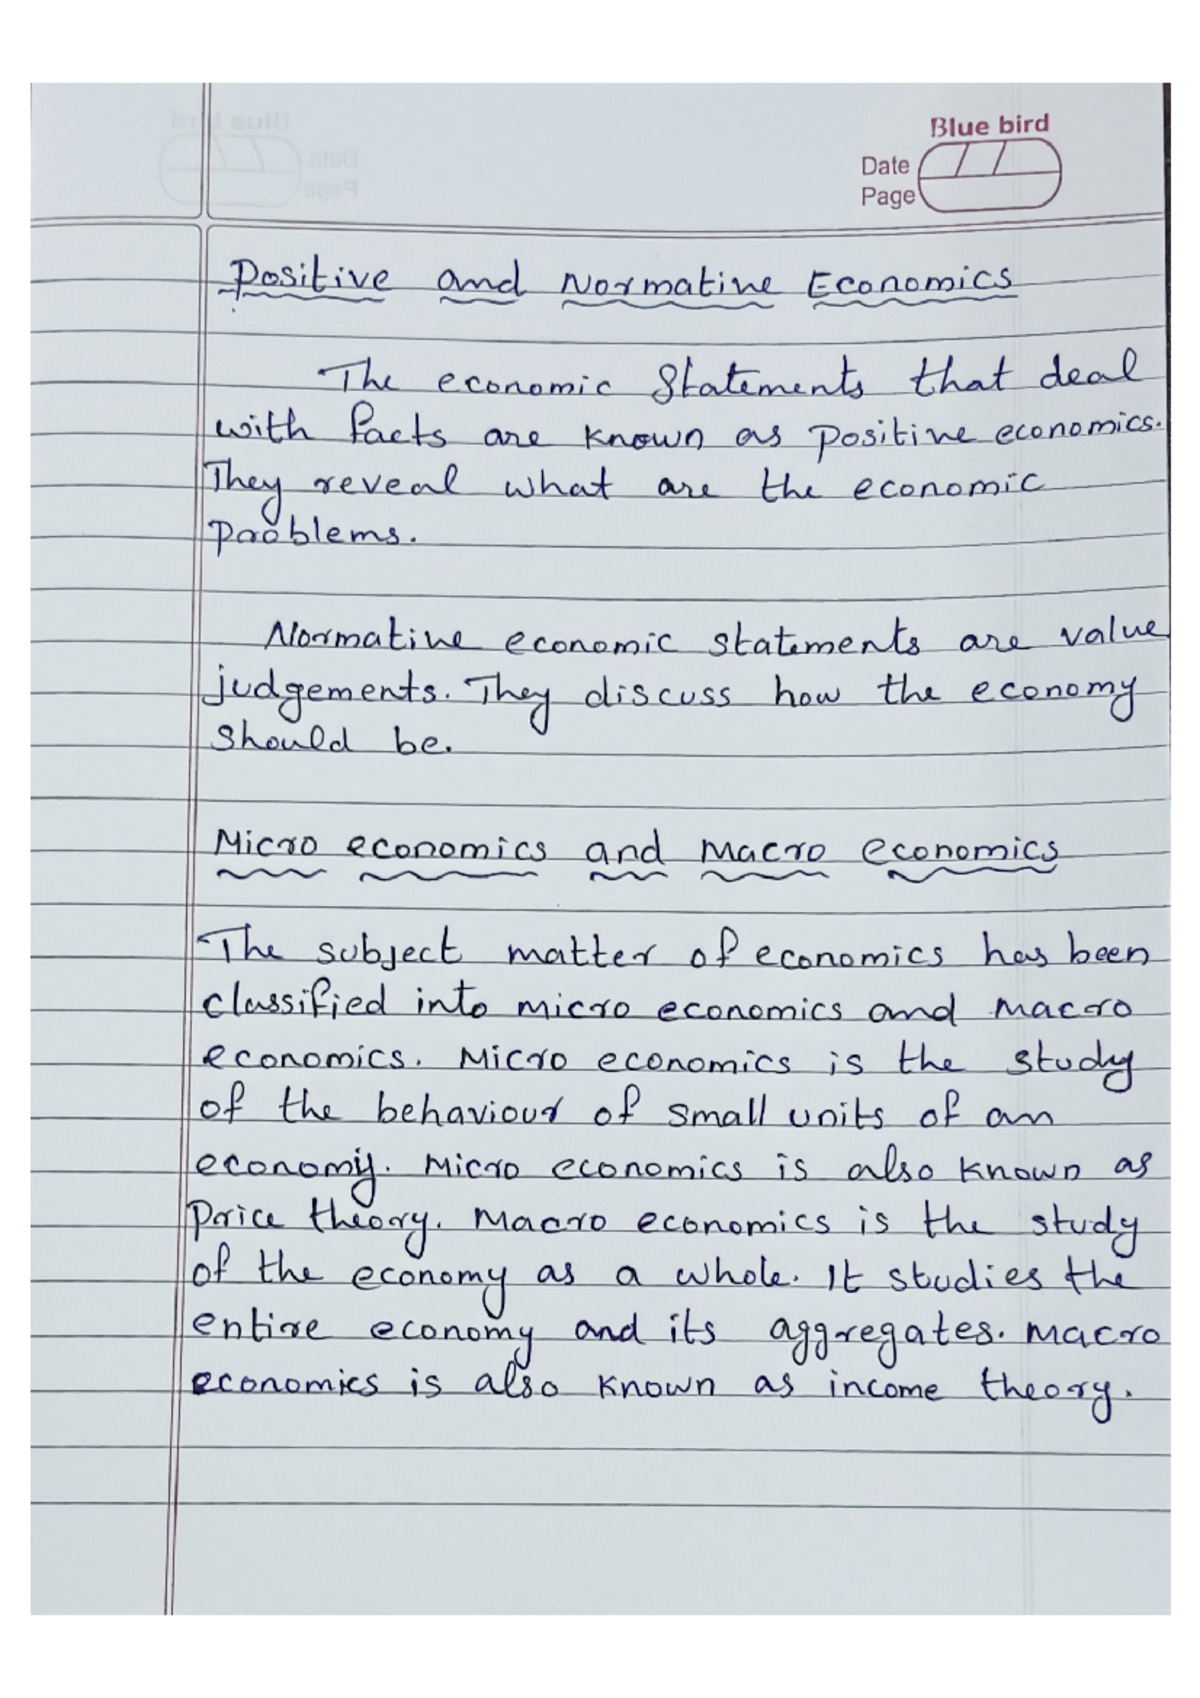 Blue bird
Date
Page
Positive and Normative Economics
The economic Statements that deal
with facts are known as positive economics.
They reveal what are the economic
problems.
Normative economic statements are value
judgements. They discuss how the economy
should be.
Micro economics and Macro economics
The subject matter of economics has been
classified into micro economics and macro
economics. Micro economics is the study
of the behaviour of small units of an
economy. Micro economics is also known as
Price theory. Macro economics is the study
of the economy as a whole. It studies the
entire economy and its aggregates. Macro
economics is also known as income theory.